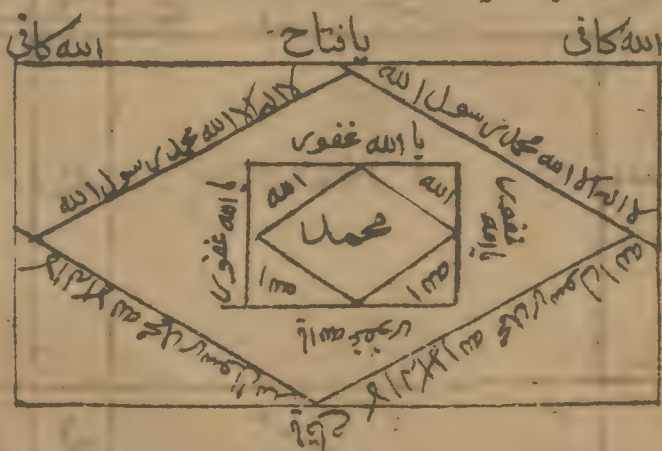 الله کافی
یا فتاح
الله کافی
لا اله الا الله محمد رسول الله
لا اله الا الله محمد رسول الله
یا الله غفور
الله
الله
یا الله غفور
محمد
یا الله غفور
الله
الله
یا الله غفور
لا اله الا الله محمد رسول الله
لا اله الا الله محمد رسول الله
یا فتاح